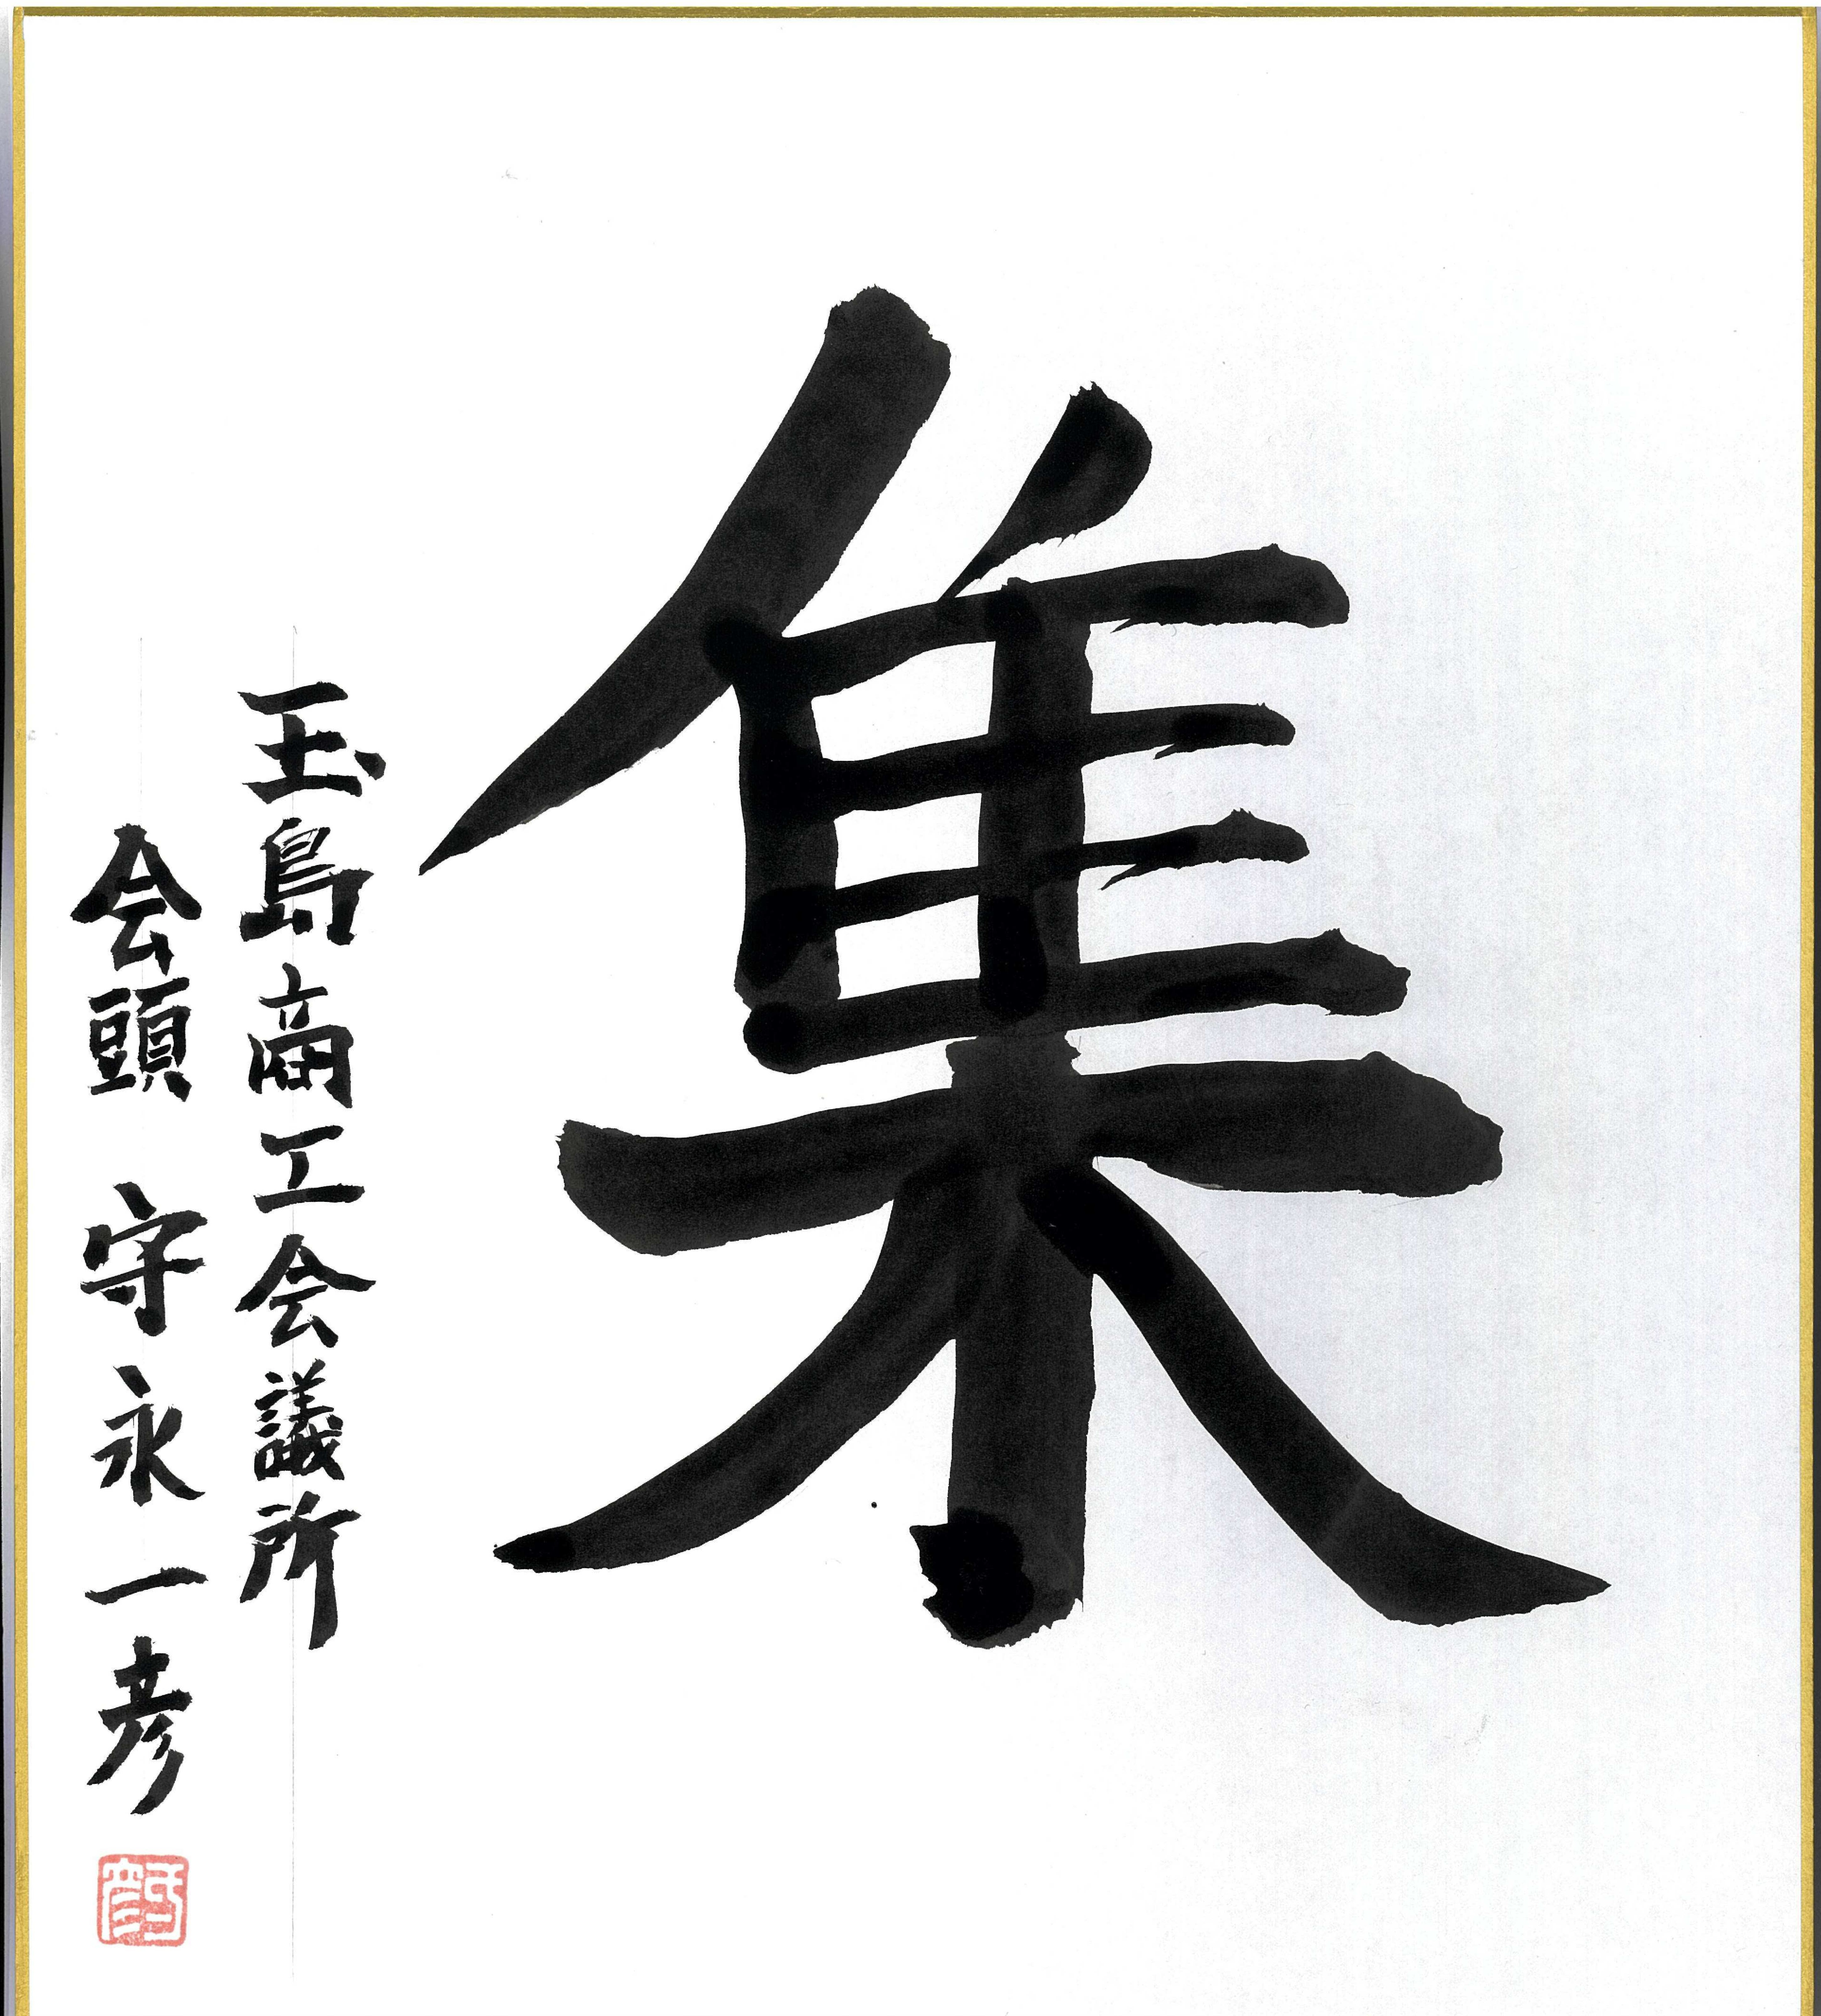 集
玉島商工会議所
会頭 守永一彦